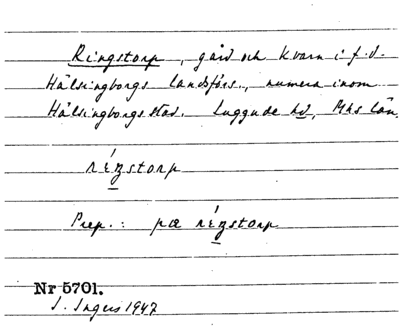 Ringstorp, gård och kvarn i f.d.
Hälsingborgs landsförs., numera inom
Hälsingborgs stad. Luggude hd, Mhs län
réŋstorp
Prep.: pæ réŋstorp
Nr 5701.
I. Ingers 1947